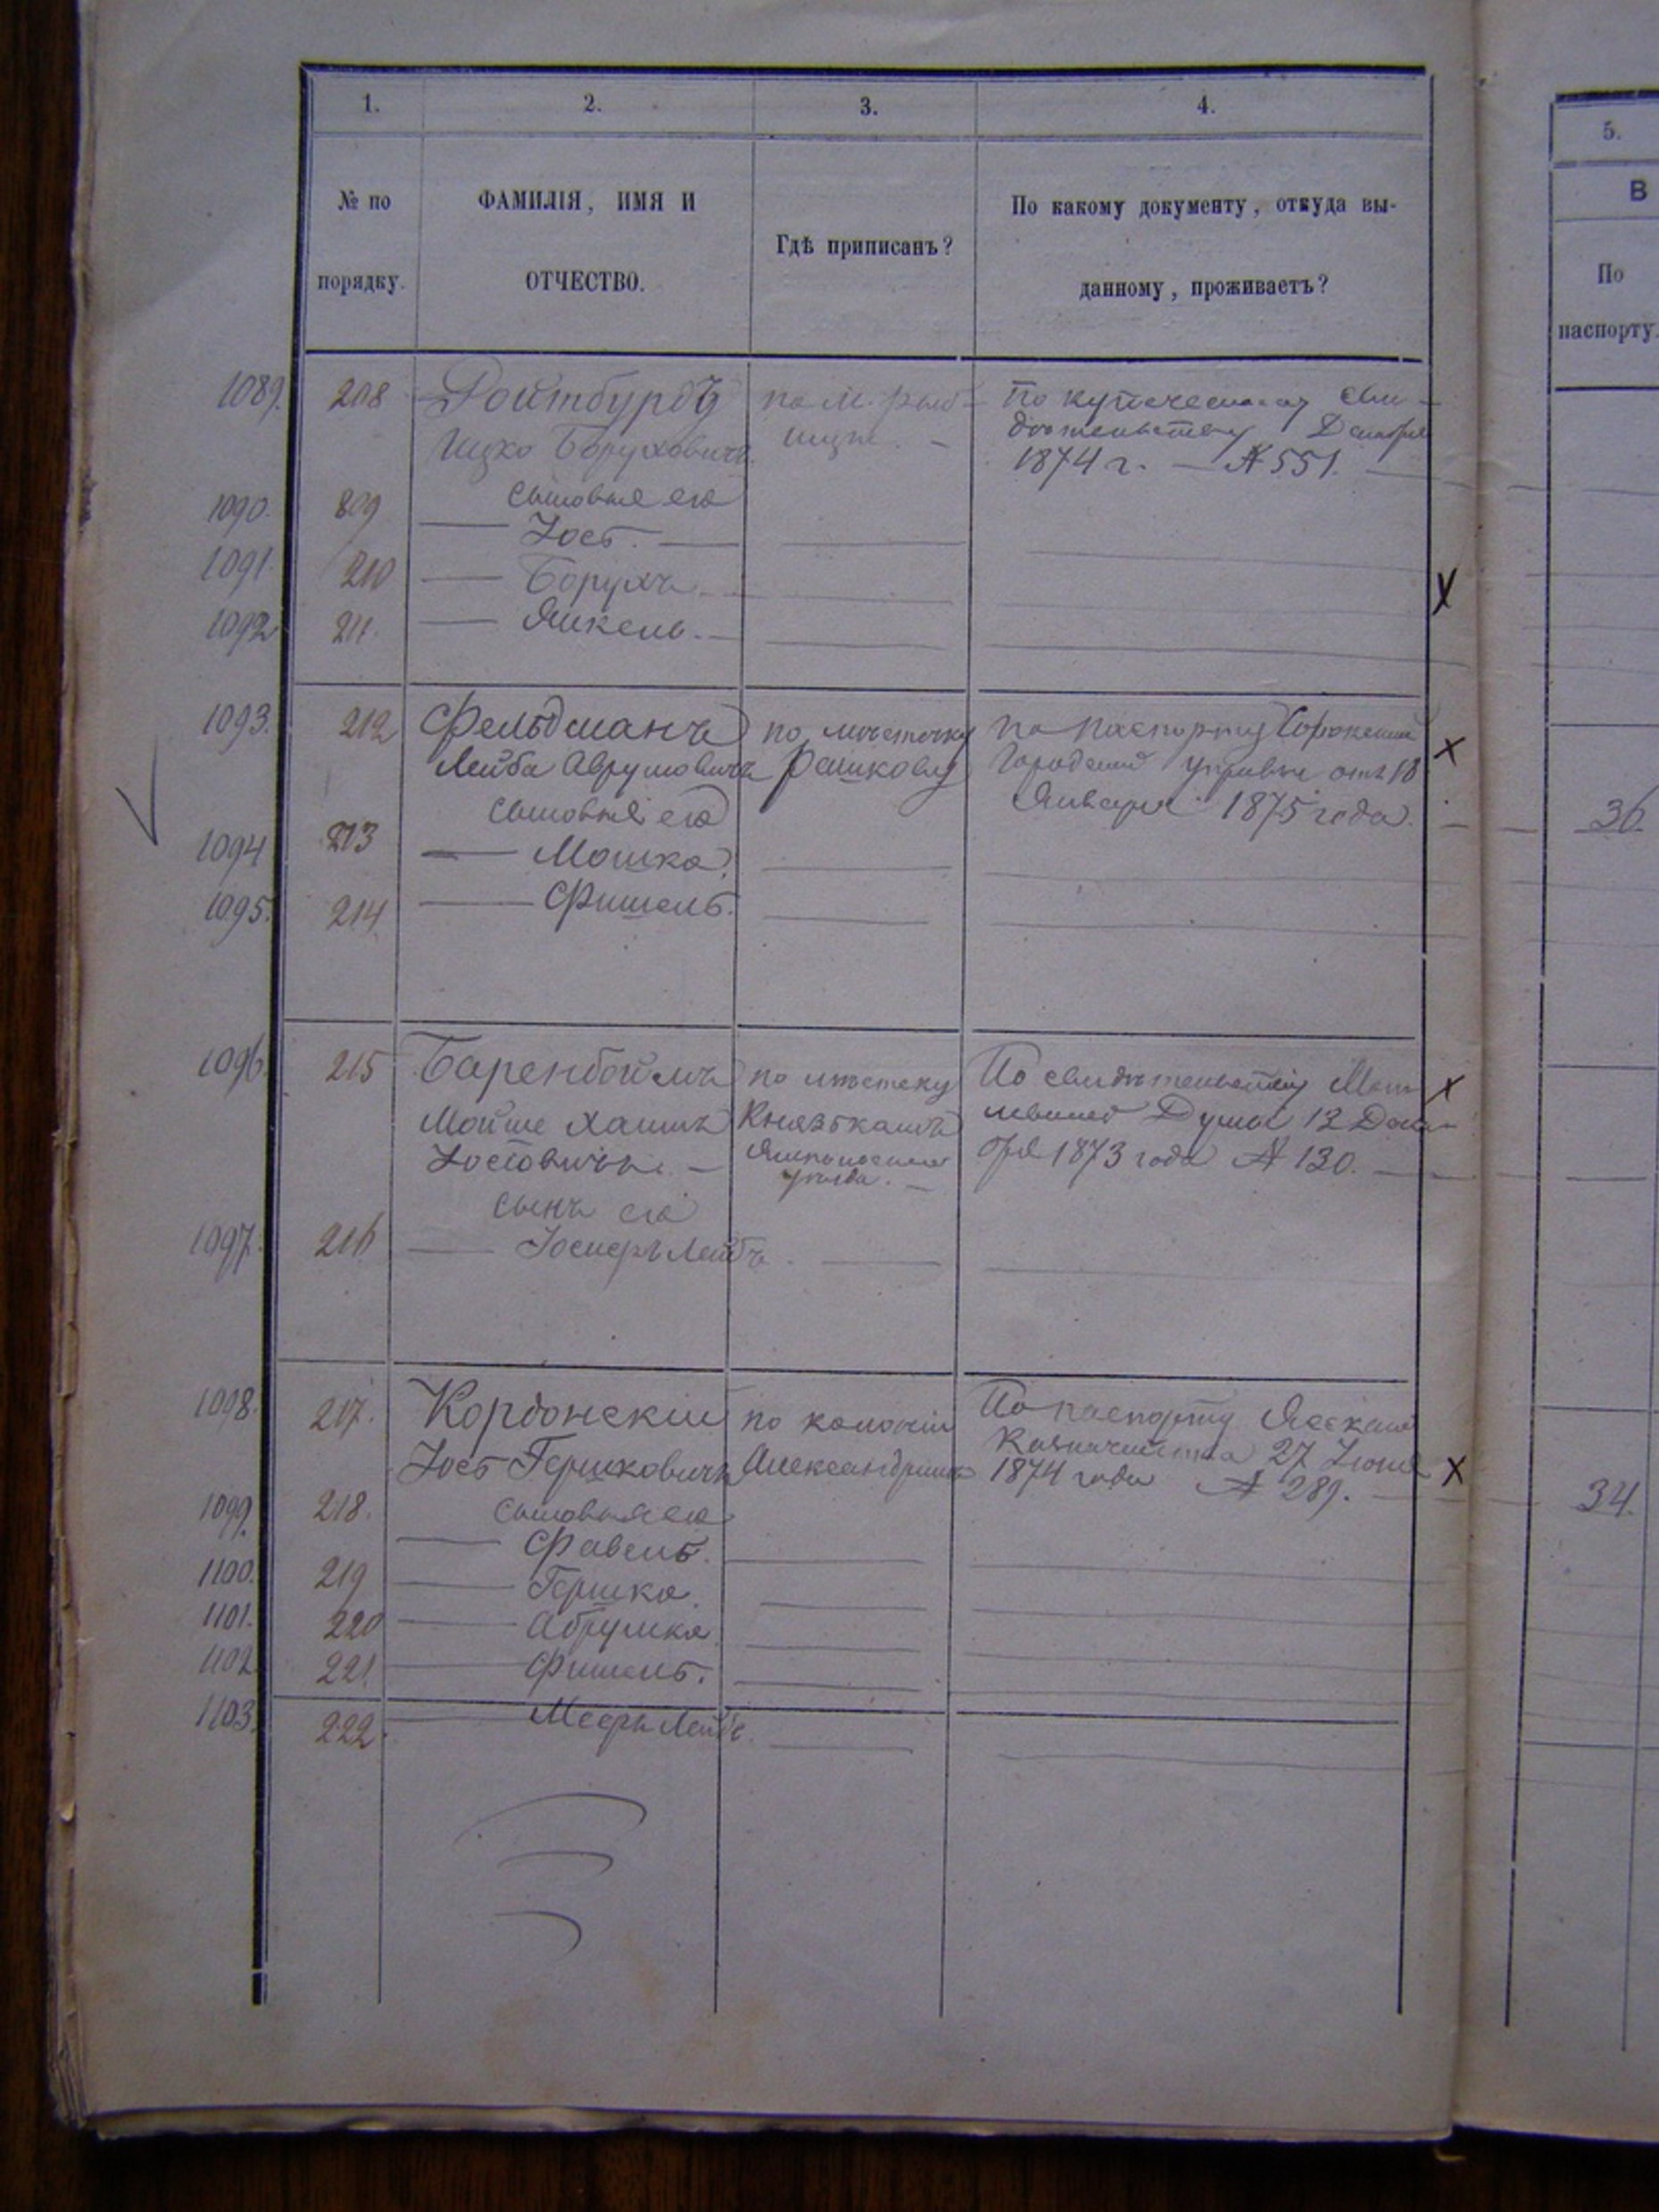 1. 2. 3. 4.
№ по порядку.
ФАМИЛІЯ, ИМЯ И
ОТЧЕСТВО.
Гдѣ приписанъ?
По какому документу, откуда вы-
данному, проживаетъ?
5.
В
По
паспорту.
1089. 208 Ройтбурдъ по м. Рыб-
ницѣ.
Ицко Боруховичъ
По купеческому сви-
дѣтельству Декабря
1874 г. — № 551. —
сыновья его
1090. 809 — Іось. —
1091. 210 — Борухъ. —
1092 211. — Янкель. —
1093. 212 Фельдманъ по мѣстечку
Лейба Аврумовичъ Рашкову
По паспорту Сорокской
Городской управы отъ 18
Января 1875 года.
36.
сыновья его
1094 213 — Мошко.
1095. 214. — Фишель.
1096. 215 Баренбоймъ по мѣстечку
Мойше Хаимъ
Іосіовичъ. —
Уѣзда. —
По свидѣтельству
Думы 12 Дека-
бря 1873 года № 130. —
сынъ его
1097. 216 — Лейбъ.
1098. 217. Кордонскій по колоніи
Іось Гершковичъ
По паспорту Ясскаго
Казначейства 27 Іюня
1874 года № 289. —
34.
сыновья его
1099. 218. — Файвель.
1100. 219 — Гершко.
1101. 220 — Абрумко
1102 221. — Фишель.
1103. 222. — Мееръ Лейбъ.